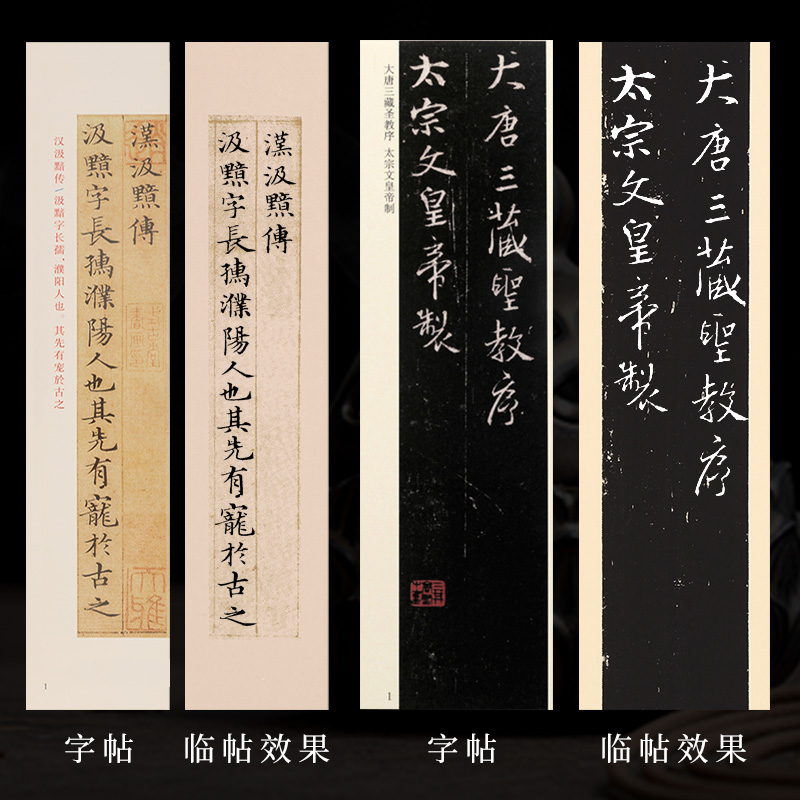 漢汲黯傳
汲黯字長孺濮陽人也其先有寵於古之
汉汲黯传/汲黯字长孺,濮阳人也。其先有宠於古之
1
字帖
漢汲黯傳
汲黯字長孺濮陽人也其先有寵於古之
临帖效果
大唐三藏聖教序
太宗文皇帝製
大唐三藏圣教序 太宗文皇帝制
1
字帖
大唐三藏聖教序
太宗文皇帝製
1
临帖效果